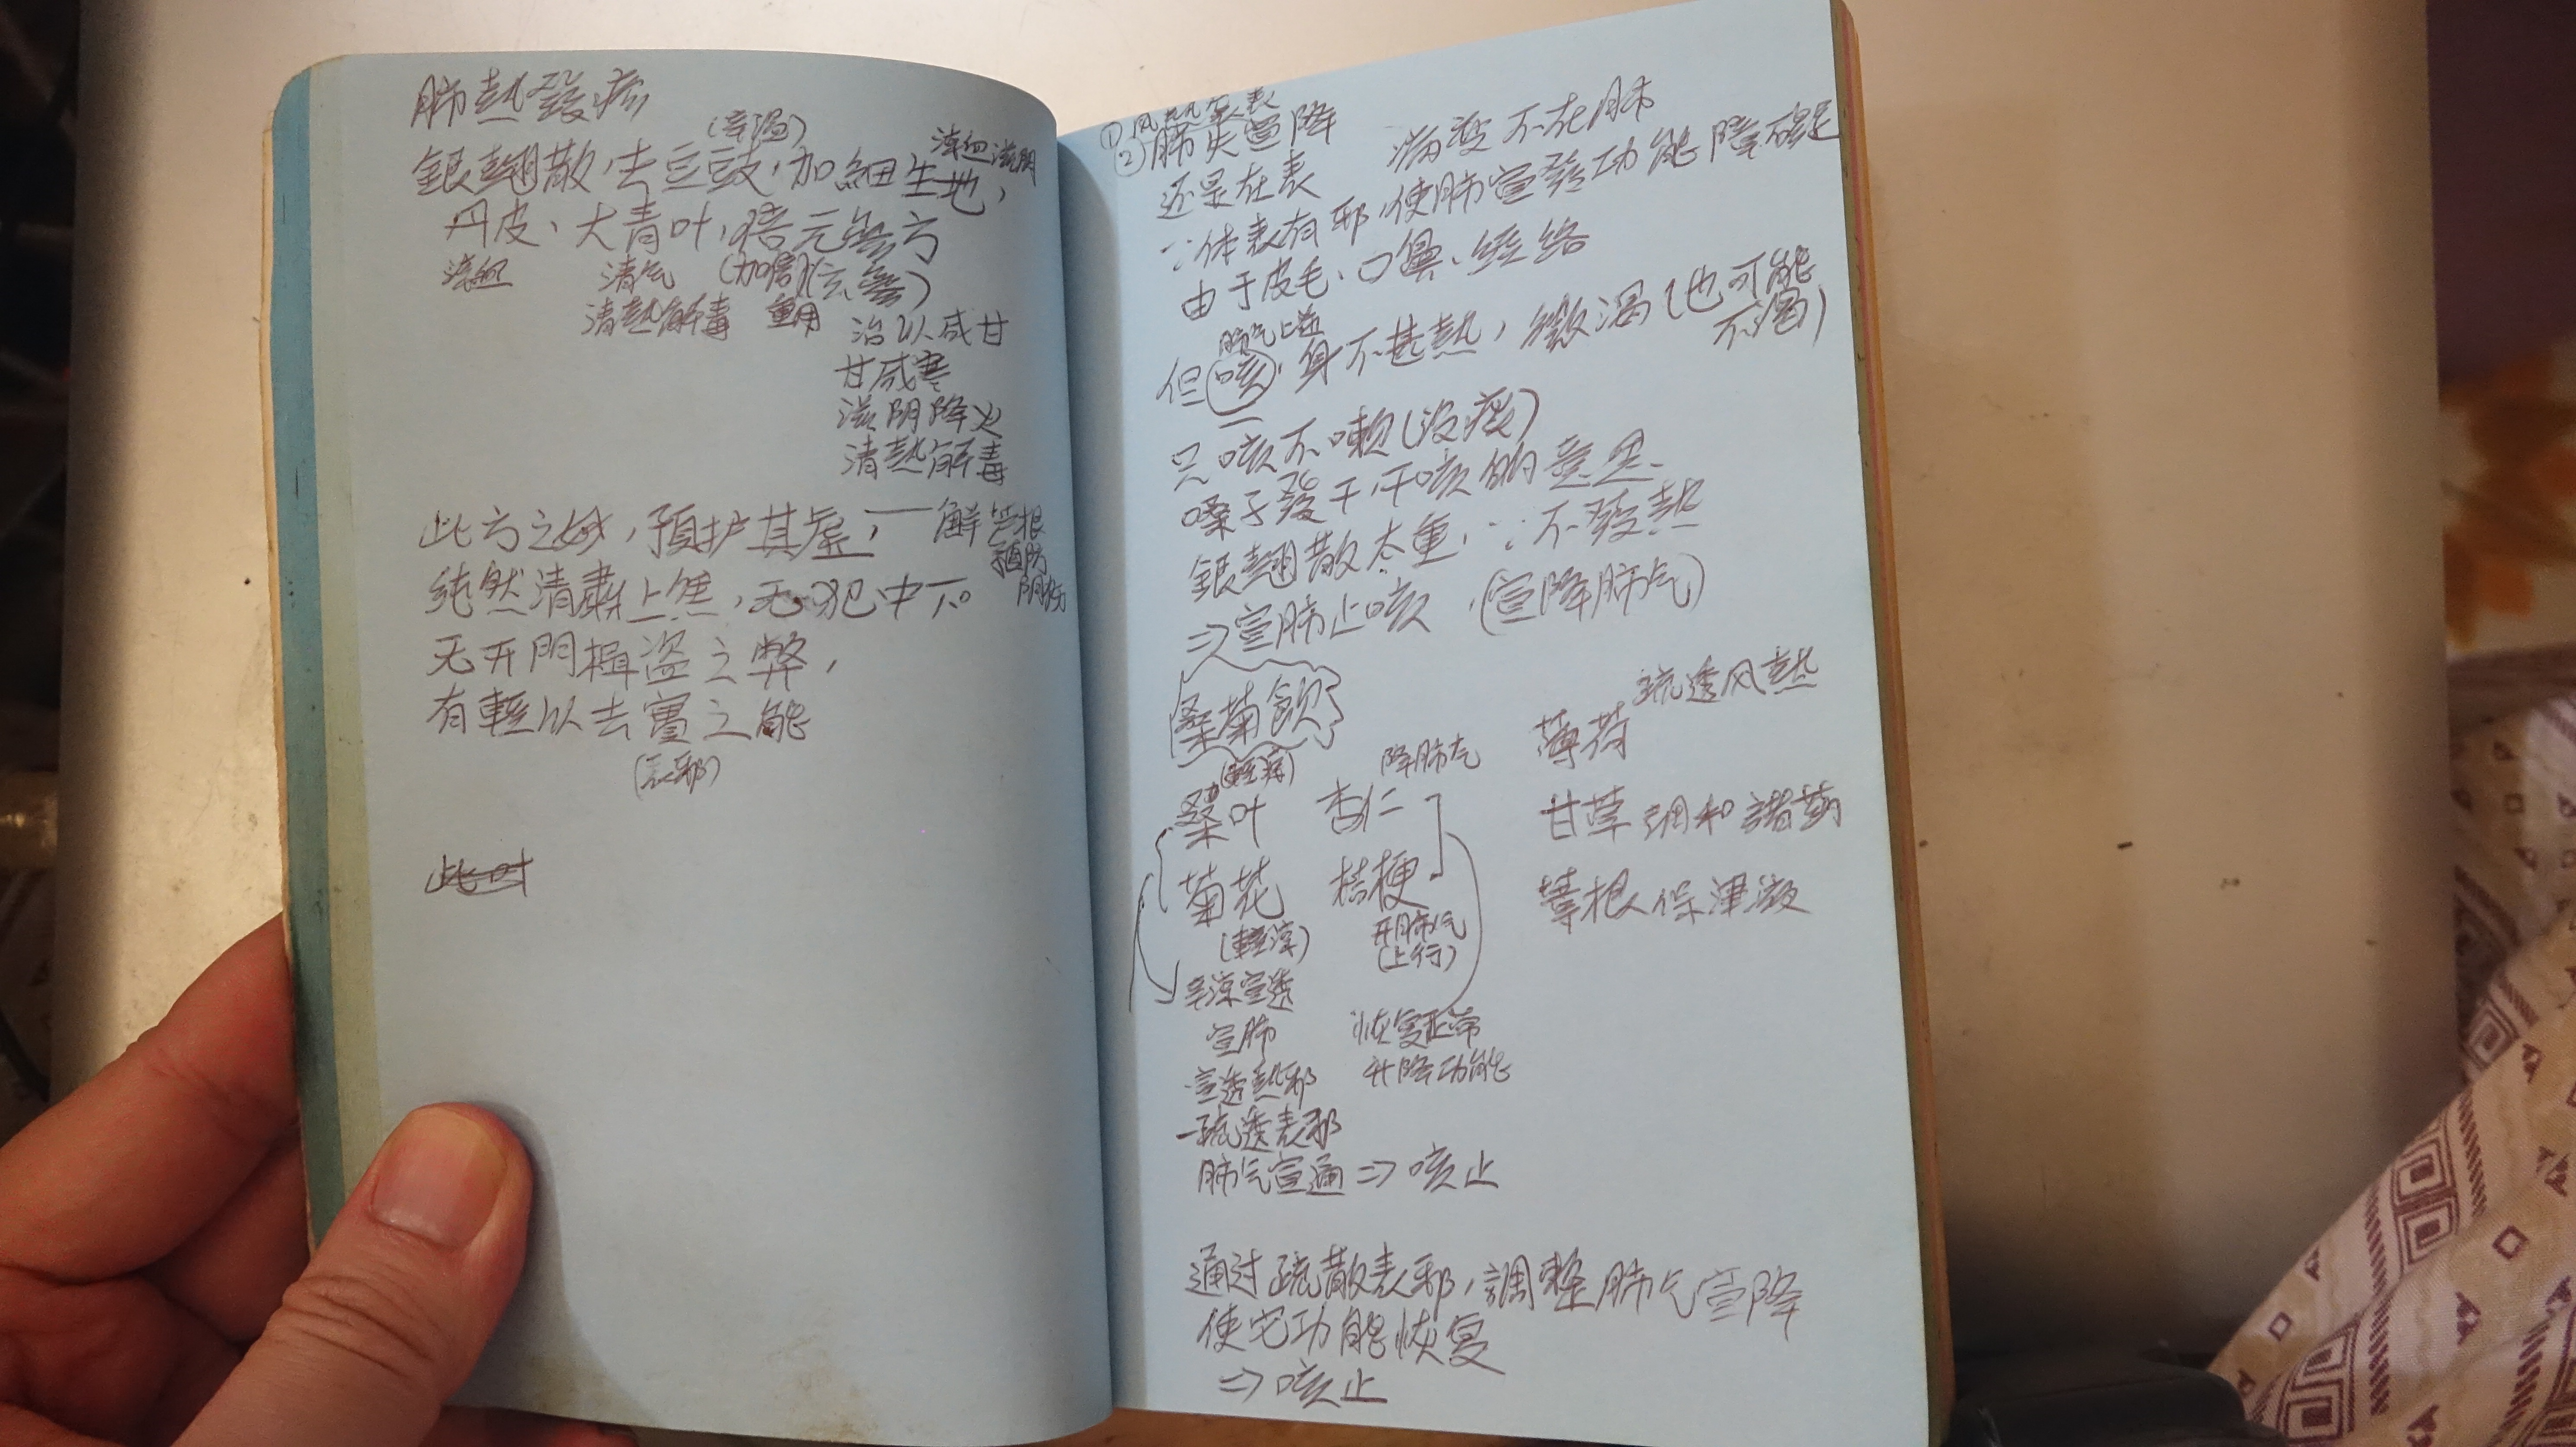 肺熱發疹
(辛溫)
清血滋阴
銀翹散,去豆豉,加細生地,
丹皮、大青叶,倍元參方
清血 清气 (加倍)(玄參)
清熱解毒 重用
治以咸甘
甘咸寒
滋阴降火
清熱解毒
此方之妙,預护其虛,——鮮芦根
預防
阴伤
純然清肅上焦,无犯中下。
无开門揖盗之弊,
有輕以去實之能
(表邪)
此时
①风熱袭表
②肺失宣降 病变不在肺
还是在表
∵体表有邪,使肺宣發功能障碍
由于皮毛、口鼻、经络
肺气上逆
但咳,身不甚熱,微渴(也可能
不渴)
只咳不嗽(没痰)
嗓子發干,干咳的意思.
銀翹散太重,∵不發熱
⇒宣肺止咳,(宣降肺气)
桑菊飲 疏透风熱
薄荷
(輕清) 降肺气
桑叶 杏仁 甘草 調和諸药
菊花 桔梗 葦根 保津液
(輕清) 开肺气
(上行)
辛涼宣透
宣肺 恢复正常
宣透熱邪 升降功能
疏透表邪
肺气宣通⇒咳止
通过疏散表邪,調整肺气宣降
使它功能恢复
⇒咳止